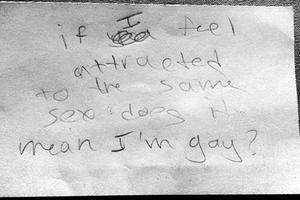 if I feel
attracted
to the same
sex does it
mean I'm gay?